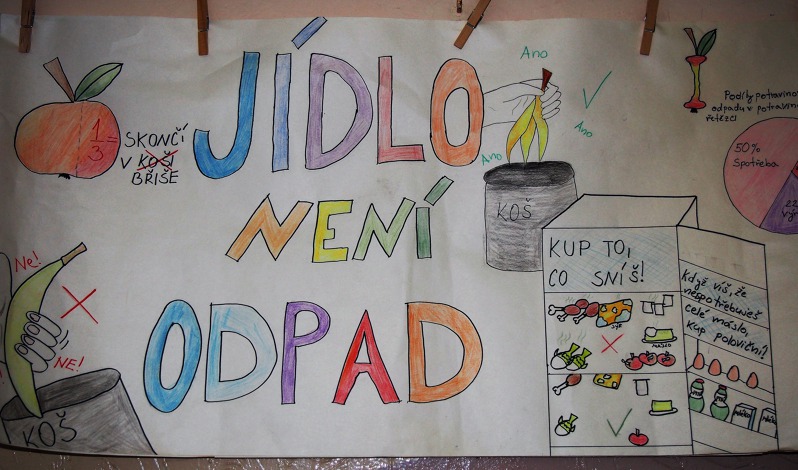 JÍDLO
NENÍ
ODPAD
1/3 =
SKONČÍ
V KOŠI
BŘIŠE
Ne!
NE!
KOŠ
Ano
Ano
Ano
KOŠ
KUP TO,
CO SNÍŠ!
SÝR
MÁSLO
Když víš, že
nespotřebuješ
celé máslo,
kup poloviční!
Podíly potravino
odpadu v potravino
řetězci
50%
Spotřeba
22
vý